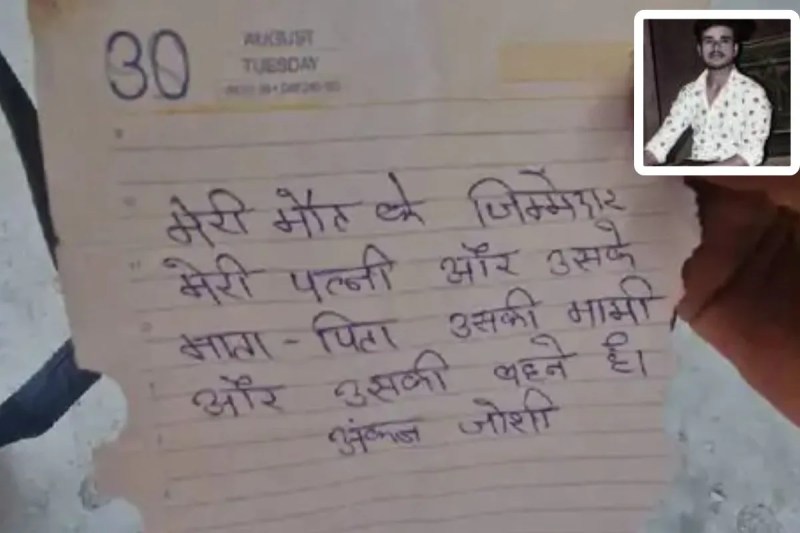 30
AUGUST
TUESDAY
मेरी मौत के जिम्मेदार
मेरी पत्नी और उसके
माता - पिता उसकी मामी
और उसकी बहने है।
जोशी